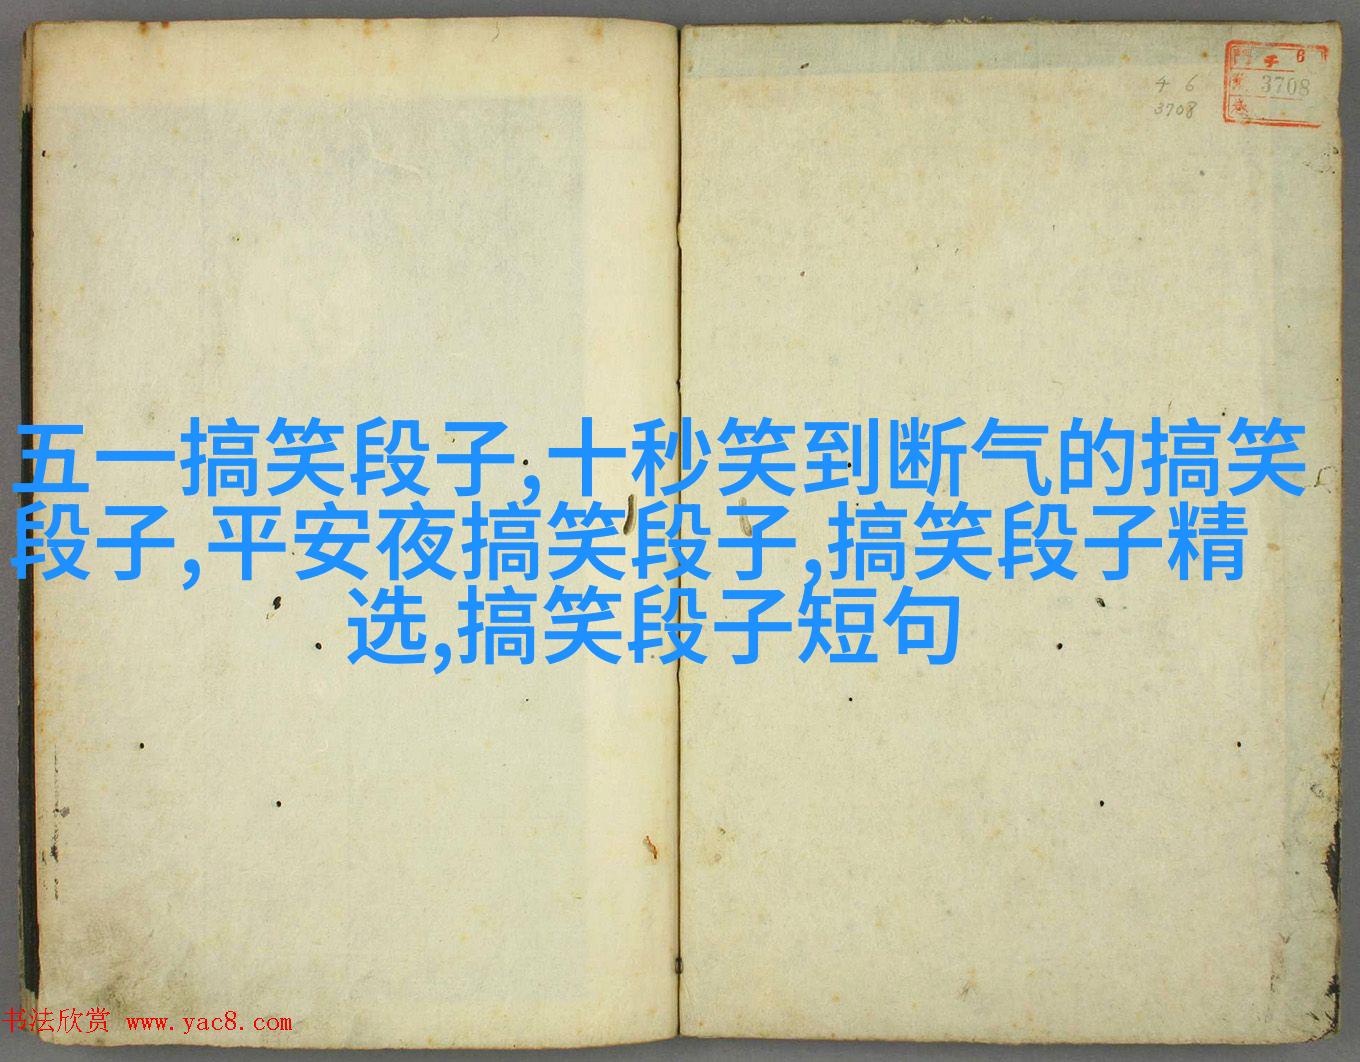 五一搞笑段子,十秒笑到断气的搞笑
段子,平安夜搞笑段子,搞笑段子精
选,搞笑段子短句
6
3708
4 6
3708
书法欣赏 www.yac8.com